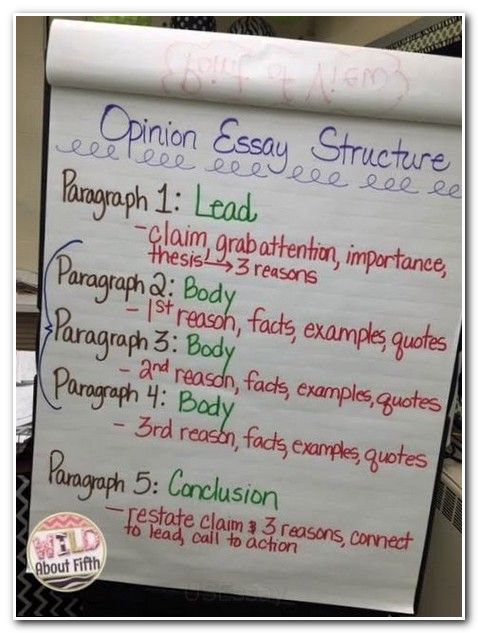 {Point of View}
Opinion Essay Structure
Paragraph 1: Lead
- claim, grab attention, importance,
thesis → 3 reasons
Paragraph 2: Body
- 1st reason, facts, examples, quotes
Paragraph 3: Body
- 2nd reason, facts, examples, quotes
Paragraph 4: Body
- 3rd reason, facts, examples, quotes
Paragraph 5: Conclusion
- restate claim & 3 reasons, connect
to lead, call to action
WILD
About Fifth
USEssay